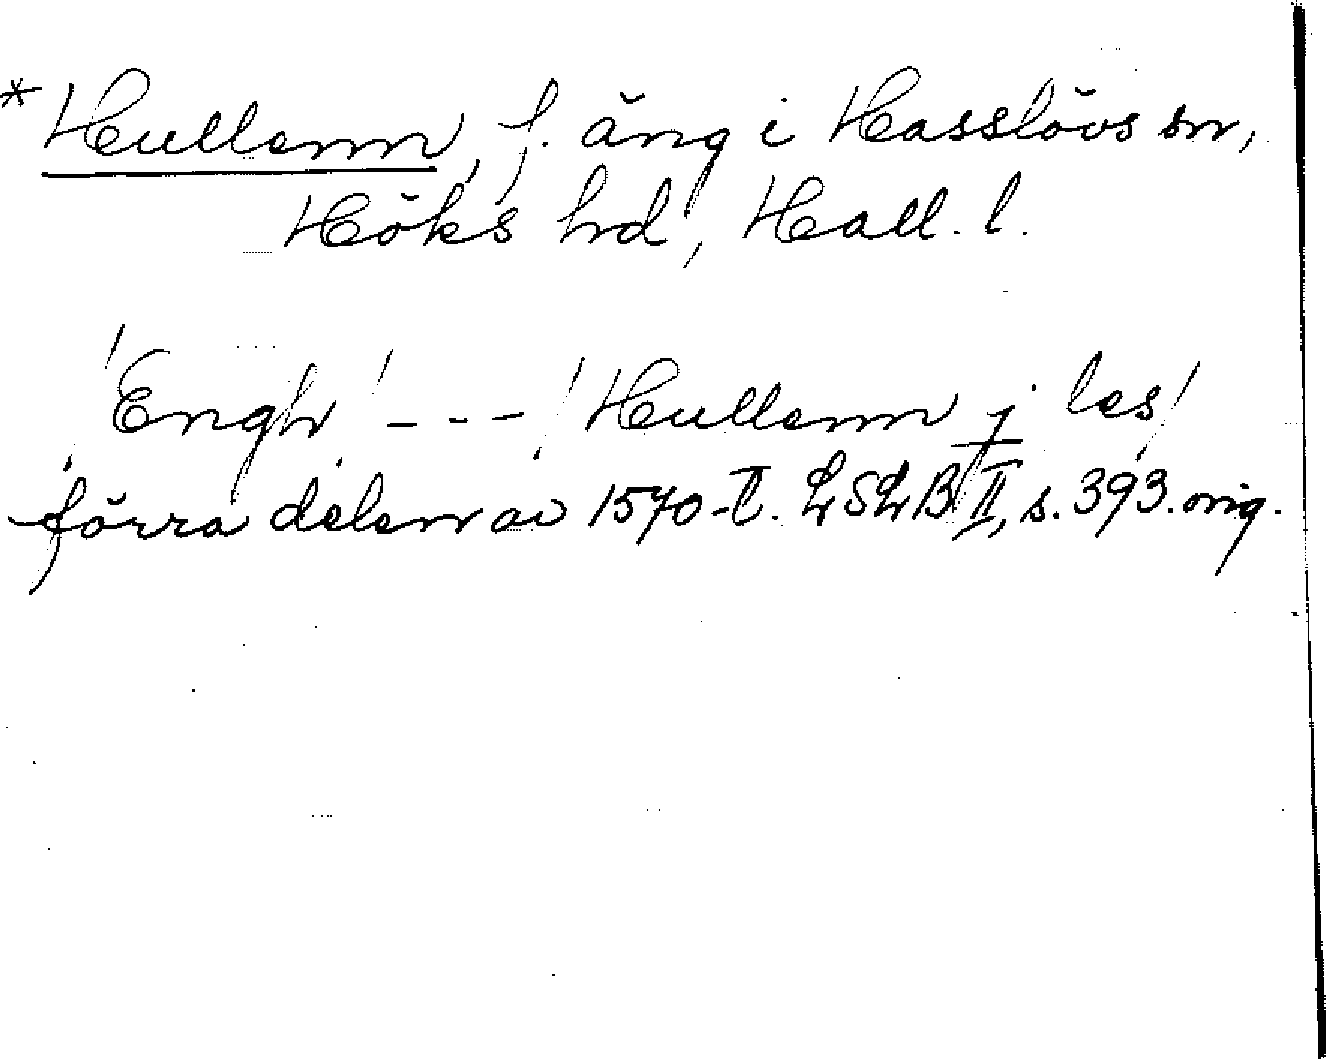 *Hullenn, f. äng i Hasslövs sn,
Höks hd, Hall. l.
/Engh/ - - - /Hullenn j les/
förra delen av 1570-t. LSLB II, s. 393. orig.